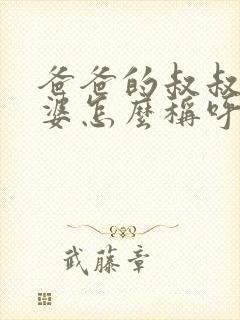 爸爸的叔叔
婆怎麼稱呼
武藤章